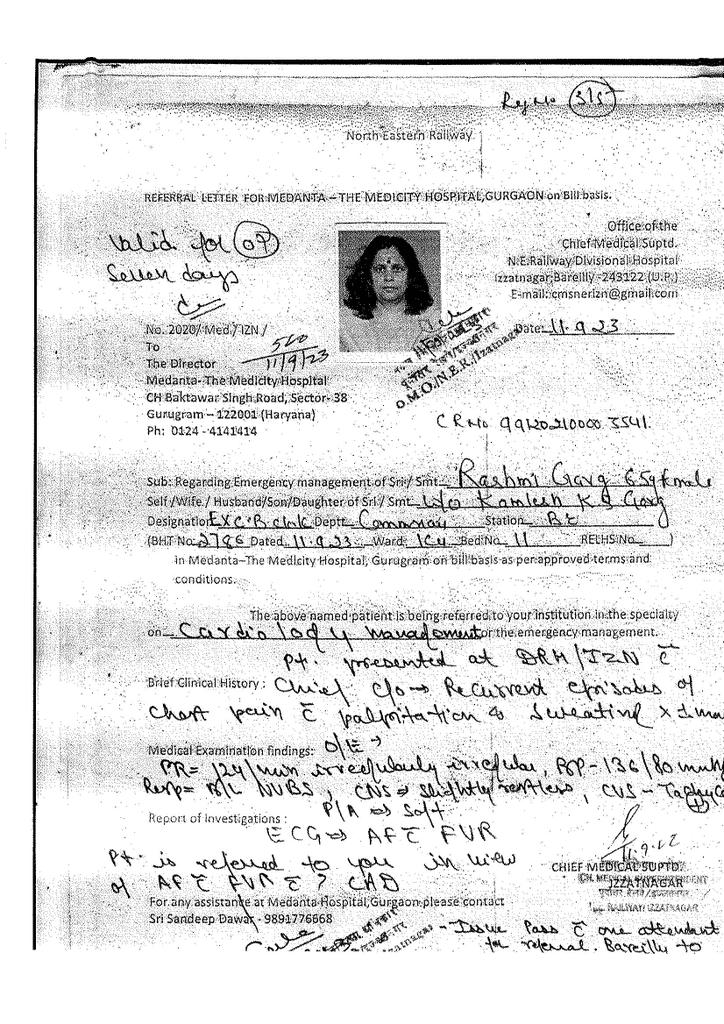 Reg No 315
North Eastern Railway
REFERRAL LETTER FOR MEDANTA – THE MEDICITY HOSPITAL,GURGAON on Bill basis.
Valid for OP
Seven days
Office of the
Chief Medical Suptd.
N.E.Railway Divisional Hospital
Izzatnagar,Bareilly -243122 (U.P.)
E-mail: cmsnerizn@gmail.com
Date: 11.9.23
No. 2020/ Med./ IZN /
520
11/9/23
To
The Director
Medanta- The Medicity Hospital
CH Baktawar Singh Road, Sector- 38
Gurugram – 122001 (Haryana)
Ph: 0124 - 4141414
D.M.O./N.E.R./Izzatnagar
CR No
Sub: Regarding Emergency management of Sri / Smt. Rashmi Garg 65y female
Self /Wife / Husband/Son/Daughter of Sri / Smt. W/o Kamlesh K Garg
Designation Deptt. Station
(BHT No. 2786 Dated. 11.9.23 Ward. ICU Bed No. 11 RELHS No. )
in Medanta–The Medicity Hospital, Gurugram on bill basis as per approved terms and
conditions.
The above named patient is being referred to your institution in the specialty
on Cardiology management for the emergency management.
Pt. presented at DRH/IZN c̄
Brief Clinical History : Chief c/o → Recurrent episodes of
chest pain c̄ palpitation & sweating
Medical Examination findings: O/E →
PR= 124/min irregularly irregular, BP - 136/80 mmHg
Resp= B/L NVBS, CNS ⇒ slightly restless, CVS -
P/A ⇒ Soft
Report of Investigations :
ECG ⇒ AF c̄ FVR
Pt. is referred to you in view
of AF c̄ FVR c̄ ? CAD
CHIEF MEDICAL SUPTD.
IZZATNAGAR
For any assistance at Medanta Hospital,Gurgaon please contact
Sri Sandeep Dawar - 9891776668
- Issue Pass c̄ one attendant
for referral. Bareilly to